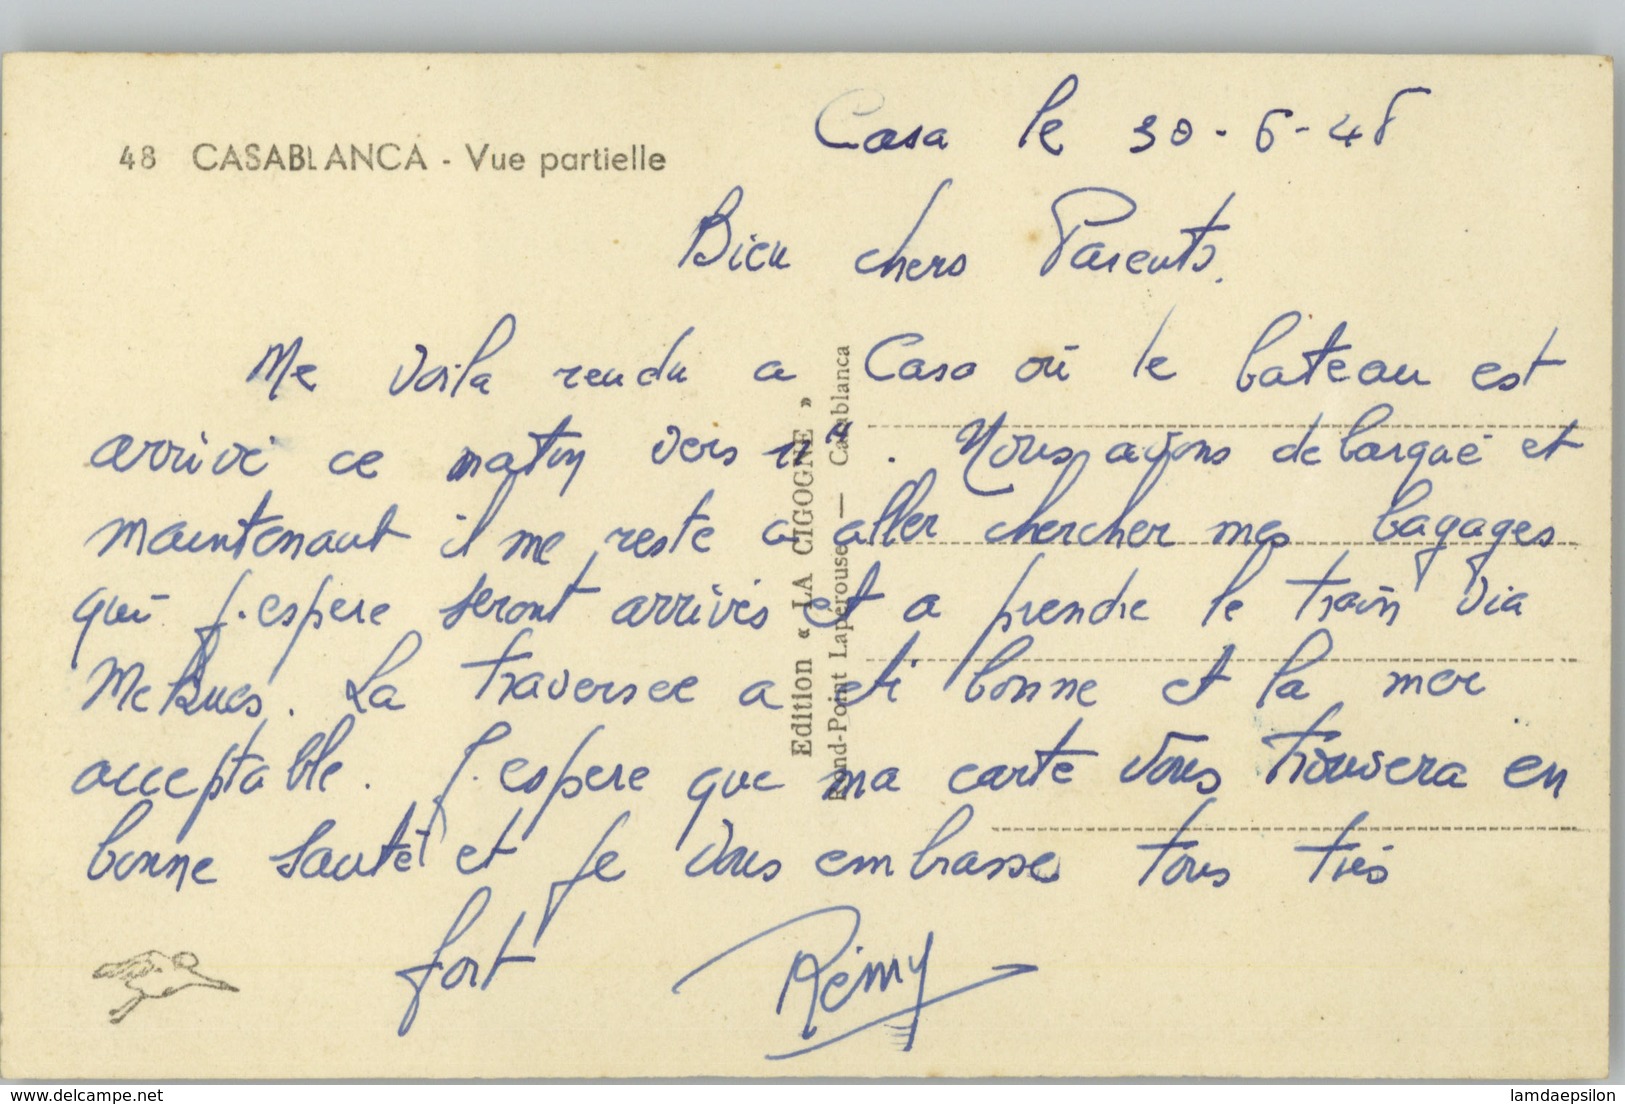 48 CASABLANCA - Vue partielle
Casa le 30-6-48
Bien chers Parents.
Me voila rendu a Casa où le bateau est
arrivé ce matin vers . Nous avons debarqué et
maintenant il me reste a aller chercher mes bagages
qui j'espere seront arrivés et a prendre le train via
Meknes. La traversee a eté bonne et la mer
acceptable. J'espere que ma carte vous trouvera en
bonne santé et je vous embrasse tous très
fort Rémy
Edition « LA CIGOGNE »
Rond-Point Laperouse — Casablanca
delcampe.net
lamdaepsilon